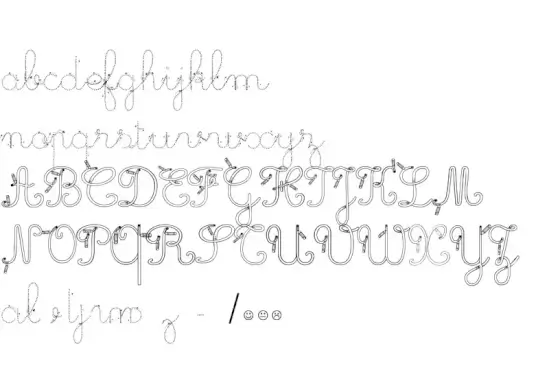 abcdefghijklm
nopqrstuvwxyz
ABCDEFGHIJKLM
NOPQRSTUVWXYZ